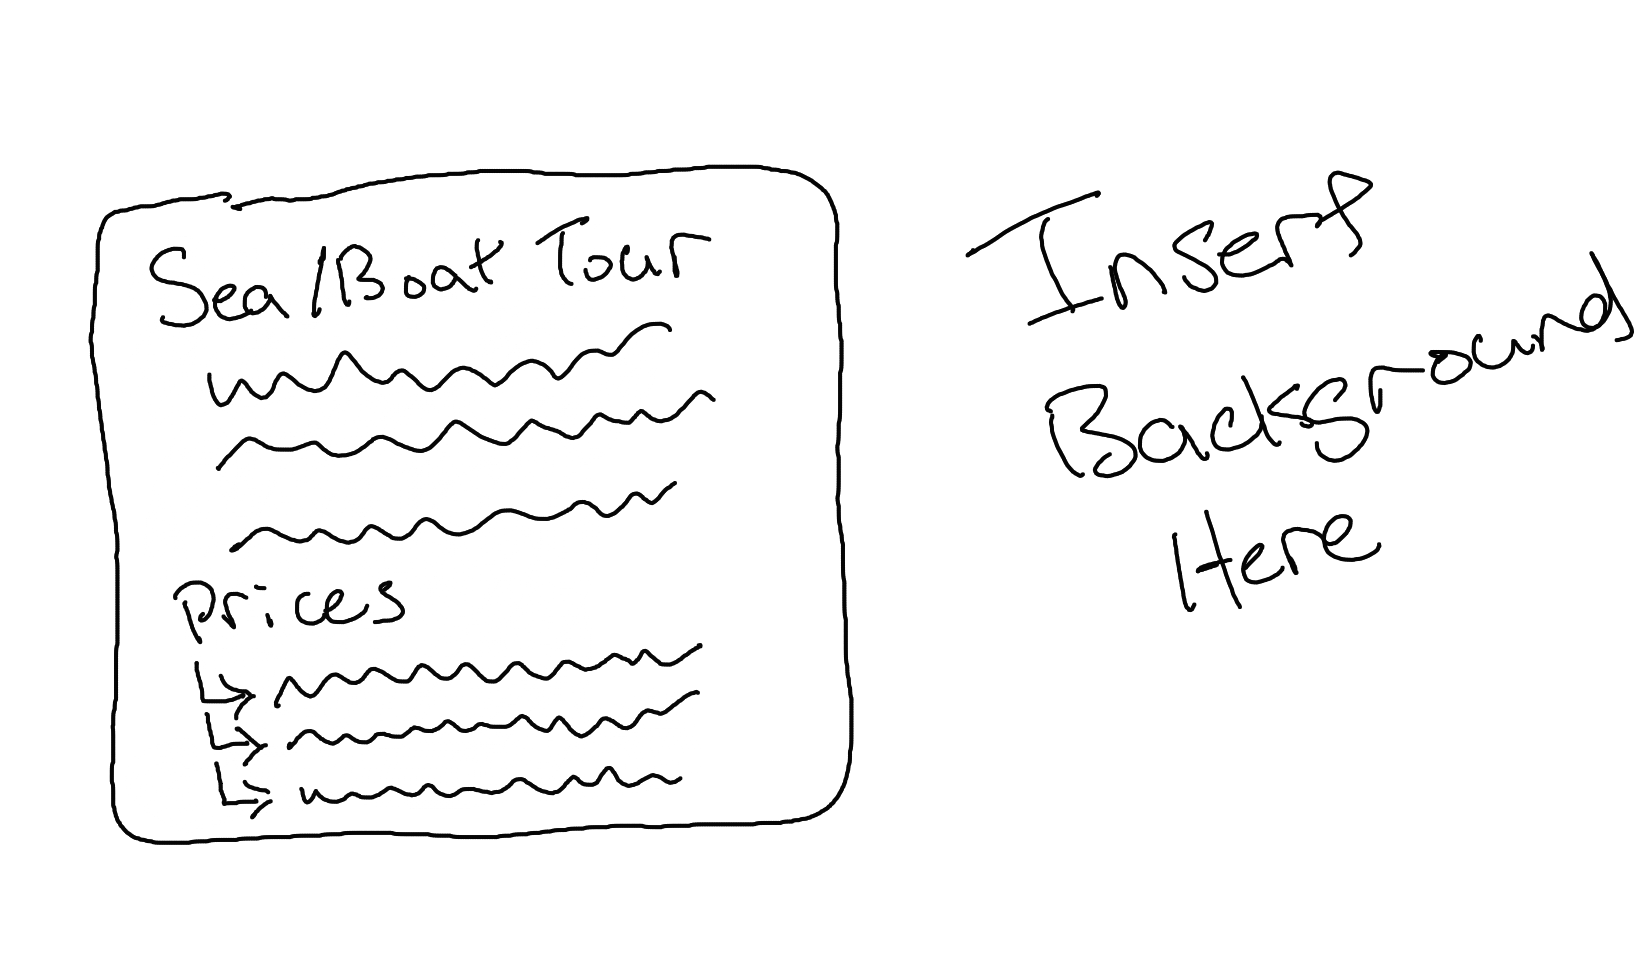 Sea/Boat Tour
Prices
Insert
Background
Here